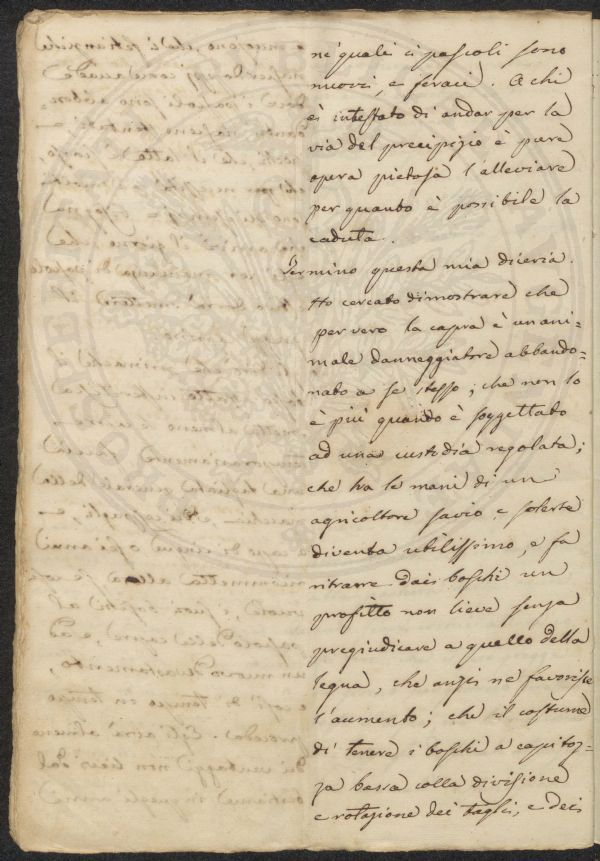 ne' quali i pascoli sono
nuovi, e feraci. A chi
è intestato di andar per la
via del precipizio è pure
opera pietosa l'alleviare
per quanto è possibile la
caduta.
Termino questa mia diceria.
Ho cercato dimostrare che
per vero la capra è un ani-
male danneggiatore abbando-
nato a se stesso; che non lo
è più quando è soggettato
ad una custodia regolata;
che tra le mani di un
agricoltore savio e solerte
diventa utilissimo, e fa
ritrarre dai boschi un
profitto non lieve senza
pregiudicare a quello della
legna, che anzi ne favorisce
l'aumento; che il costume
di tenere i boschi a capitoz-
za bassa colla divisione
e rotazione dei tagli, e dei